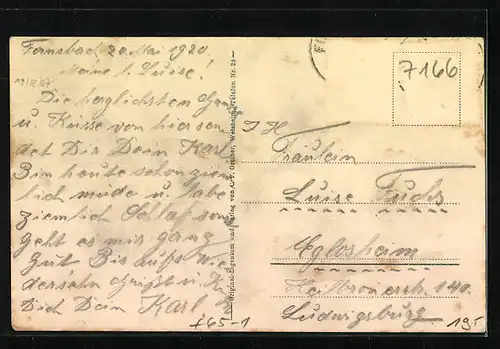 Fornsbach 20 Mai 1920.
Meine l. Luise!
Die herzlichsten Grüße
u. Küsse von hier sen
det Dir Dein Karl
Bin heute schon ziem
lich müde u. habe
ziemlich
geht es mir ganz
gut Bis aufs Wie
dersehn grüßt u. Küßt
Dich Dein Karl
Original-Eigentum und Verlag von Telefon Nr. 25
7166
Fräulein
Luise Fuchs
Eglosheim
Heilbronerstr. 140.
Ludwigsburg
£65-1
19,-